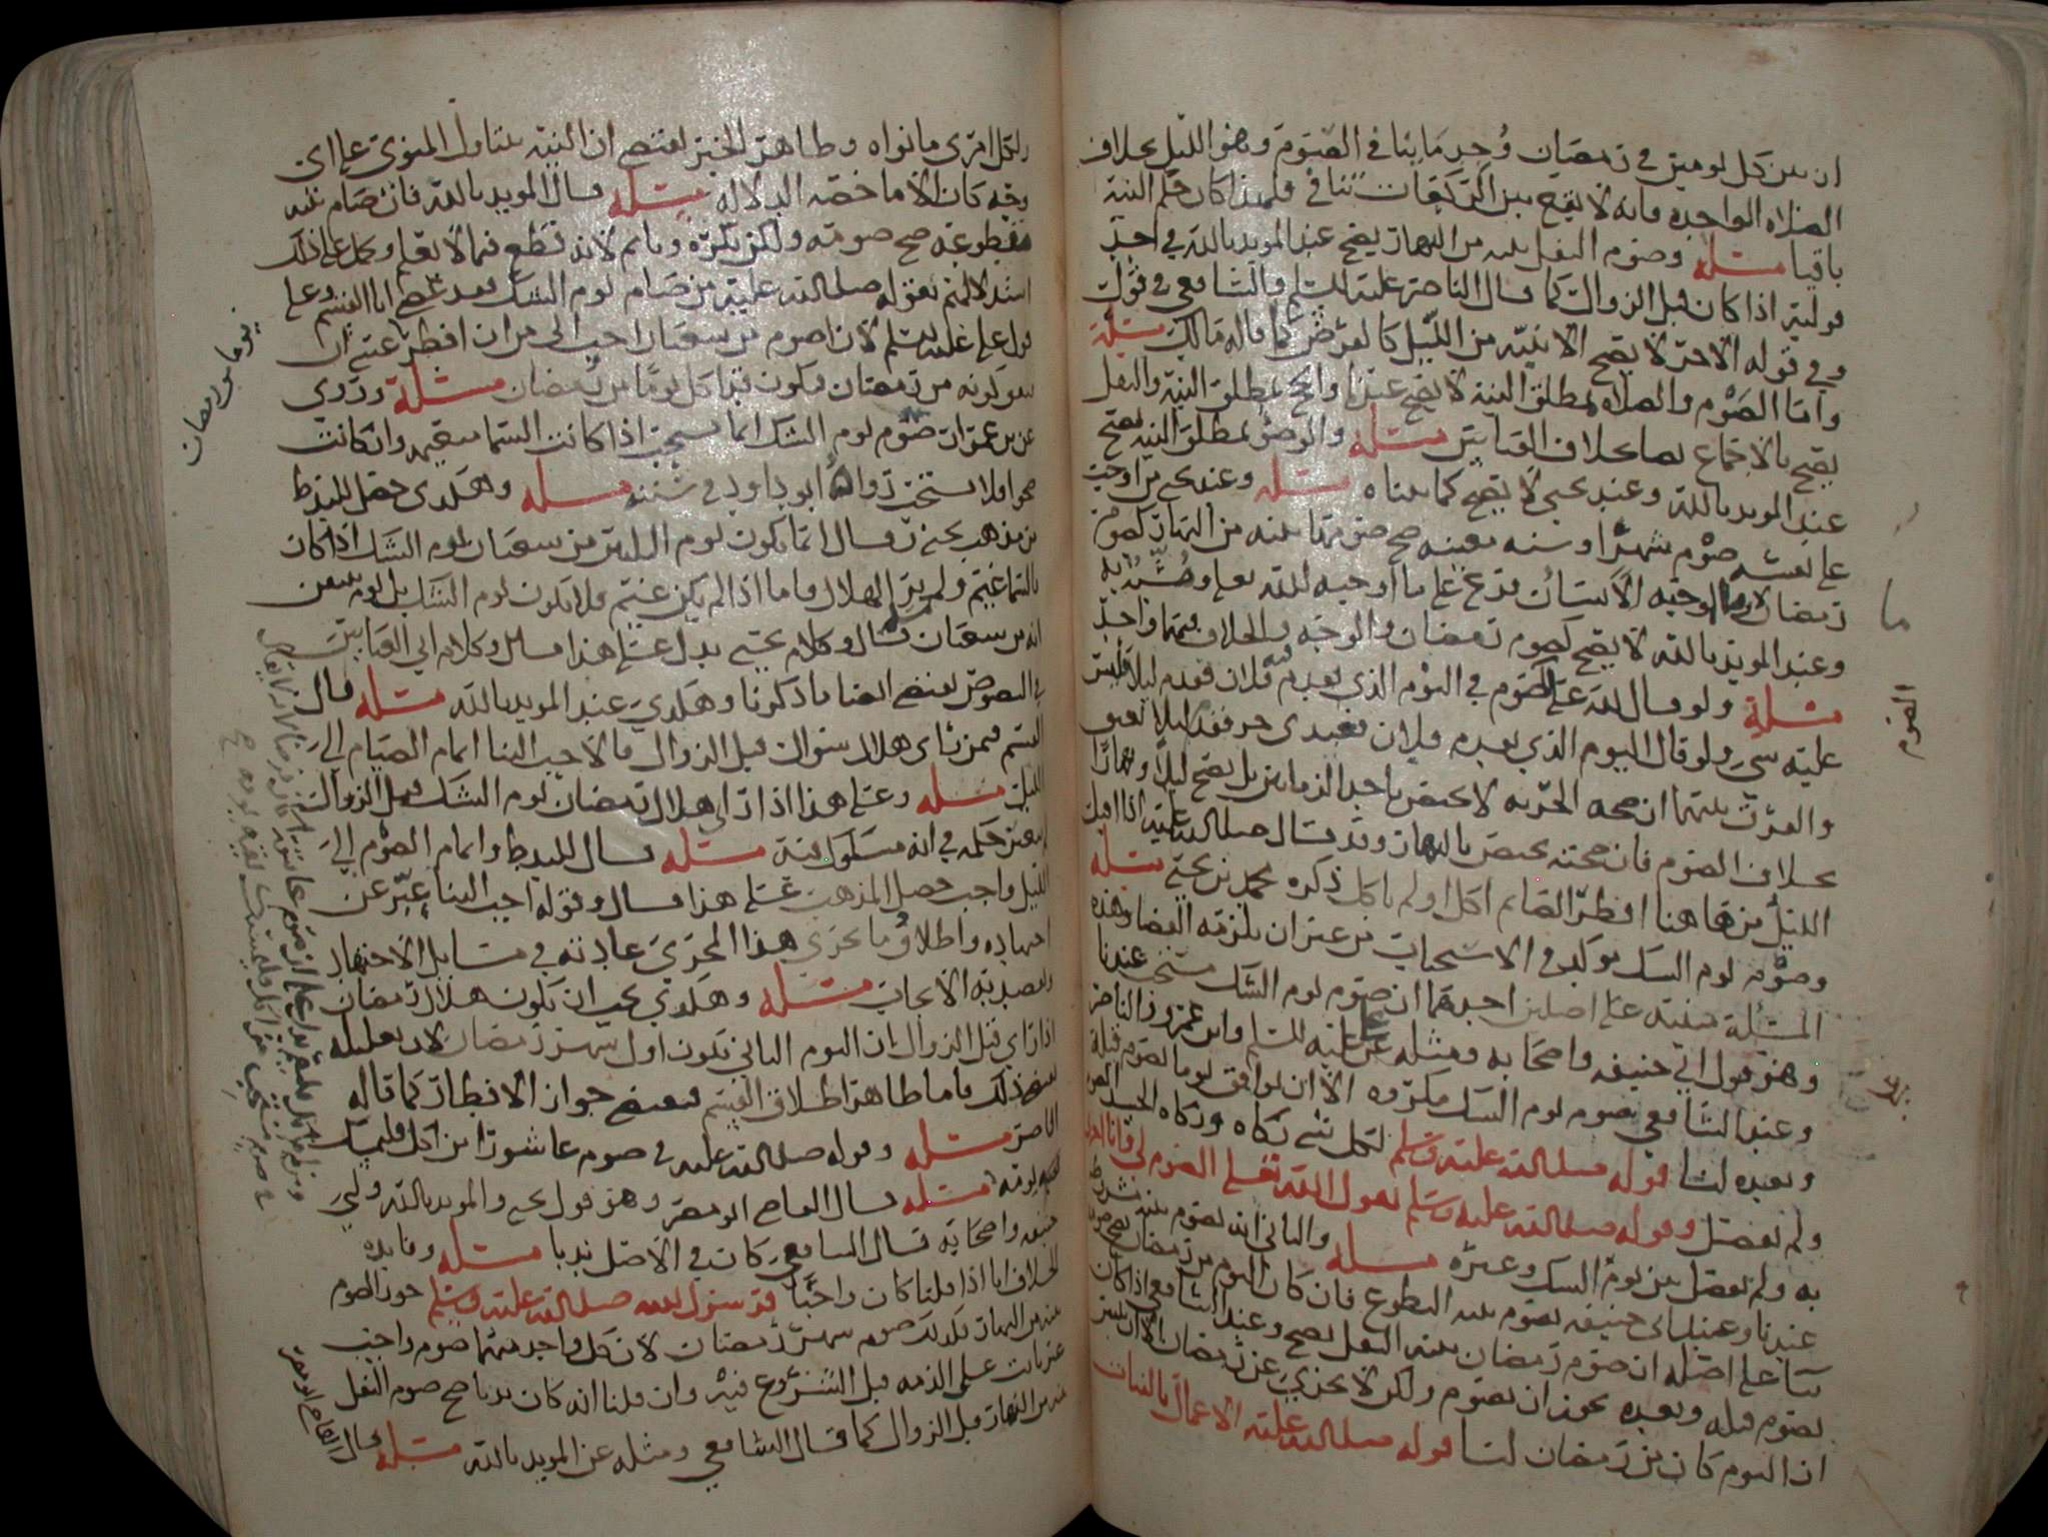 ان بين كل يومين في رمضان وُجد ما ينافي الصَّوم وهو الليل بخلاف
الصلاه الواحده فانه لا يقع بين الركعات تنافي فلهذا كان حكم النية
باقيا مسئله وصوم النفل بنيه من النهار يصح عند المويد بالله في احد
قوليه اذا كان قبل الزوال كما قال الناصر عليه السلم والشافعي في قول
وفي قوله الاخر لا يصح الا بنية من الليل كالفرض كما قاله مالك مسئلة
واما الصَّوْم والصلاه بمطلق النية لا يصح عندنا والحج بمطلق النية والنفل
يصح بالاجماع بها بخلاف القياس مسئله والوضو بمطلق النيه يصح
عند المويد بالله وعند يحيى لا يصح كما بيناه مسئله وعند يحيى من اوجب
على نفسه صوْم شهرًا او سنه بعينه صح صومها بنيه من النهار كصوم
رمضان لان ما اوجبه الانسان فرع على ما اوجبه الله تعلى وشُبِّه به
وعند المويد بالله لا يصح كصوم رمضان والوجه والخلاف فيهما واحد
مسئلة ولو قال لله علي الصَّوم في اليوم الذي يقدم فيه فلان فقدم ليلا فليس
عليه شي ولو قال اليوم الذي يقدم فلان فعبدى حر فقدم ليلا يعتق
والفرق بينهما ان صحه الحريه لا يختص باحد الزمانين بل يصح ليلاً ونهارًا
بخلاف الصَّوم فان صحته يختص بالنهار وقد قال صلى الله عليه اذا اقبل
الليل من هاهنا افطر الصايم اكل او لم ياكل ذكره محمد بن يحيى مسئله
وصوْم يوم الشك موكد في الاستحباب من غير ان يلزمه القضا وهذه
المسئلة مبنيه على اصلين احدهما ان صوم يوم الشك مستحب عندنا
وهو قول ابي حنيفه واصحابه ومثله عن علي عليه السلم وابن عمر والناصر
وعند الشافعي صوم يوم الشك مكروه الا ان يوافق يوما يصوم قبله
وبعده لنا قوله صلى الله عليه وسلم لكل شي زكاه وزكاه الجسد الصوم
ولم يفصل وقوله صلى الله عليه وسلم يقول الله تعلى الصوم لي وانا اجزي
به ولم يفصل بين يوم الشك وغيره مسئله والثاني انه يصوم بنيه مشروطه
عندنا وعند ابي حنيفه يصوم بنيه التطوع فان كان اليوم من رمضان صح صومه
بنا على اصله ان صوم رمضان بنيه النفل يصح وعند الشافعي اذا كان
يصوم قبله وبعده يجوز ان يصوم ولكن لا يجزي عن رمضان الا ان يتبين
ان اليوم كان من رمضان لنا قوله صلى الله عليه الاعمال بالنيات
ما
الصوم
ولكل امرى ما نواه وظاهر الخبر يقتضي ان النية يتناول المنوى على اي
وجه كان الا ما خصه الدلاله مسئله قال المويد بالله فان صام بنيه
مقطوعه صح صومه ولكن يكره وياثم لانه قطع فيما لا يعلم وحمل على ذلك
استدلالهم بقوله صلى الله عليه من صام يوم الشك فقد عصى ابا القسم وعلى
قول علي عليه السلم لان اصوم من شعبان احب الي من ان افطر عنى ان
يكونه من رمضان فيكون قضا كل يومًا من رمضان مسئلة وروي
عن بن عمر ان صوْم يوم الشك انما يستحب اذا كانت السما متغيمه وان كانت
صحوا فلا يستحب رواه ابو داود في سننه مسئله وهكدى حصل للمذهب
من مذهب يحيى وقال انما يكون يوم الثلثين من شعبان يوم الشك اذا كان
بالسما غيم ولم يُر الهلال فاما اذا لم يكن غيم فلا يكون يوم الشك بل يوم يتيقن
انه من شعبان قال وكلام يحيى يدل على هذا قال وكلام ابي العباس
في النصوص يقتضي ايضا ما ذكرنا وهكدي عند المويد بالله مسئله قال
القسم فيمن راى هلال شوال قبل الزوال فالاحب الينا اتمام الصيام الى
الليل مسئله وعلى هذا اذا راى هلال رمضان يوم الشك قبل الزوال
لم يتغير حكمه في انه مشكوك فيه مسئله قال للمذهب واتمام الصوم الى
الليل واجب حصل المذهب على هذا قال وقوله احب الينا عِبّر عن
اجتهاده واطلاقُ ما يجري هذا المجرَى عادته في مسايل الاجتهاد
ولم يصد به الايجاب مسئله وهكدي يجب ان يكون هلال رمضان
اذا راى قبل الزوال ان اليوم الثاني يكون اول شهر رمضان لان تعليله
يقتضي ذلك فاما ظاهر اطلاق القسم فيقتضي جواز الافطار كما قاله
الناصر مسئله وقوله صلى الله عليه في صوم عاشورا من اكل فليمسك
بقية يومه مسئله قال القاضي ابو مضر وهو قول يحيى والمويد بالله وابي
حنيفه واصحابه قال الشافعي كان في الاصل ندبا مسئله وفايده
الخلاف انا اذا قلنا كان واجبًا فرسول الله صلى الله عليه وسلم جوز الصوم
بنيه من النهار فكذلك صوم شهر رمضان لان كل واحد منهما صوم واجب
غير ثابت على الذمه قبل الشروع فيه وان قلنا انه كان ندبا صح صوم النفل
بنيه من النهار قبل الزوال كما قال الشافعي ومثله عن المويد بالله مسئله قال
القاضي ابو مضر
يوما من رمضان